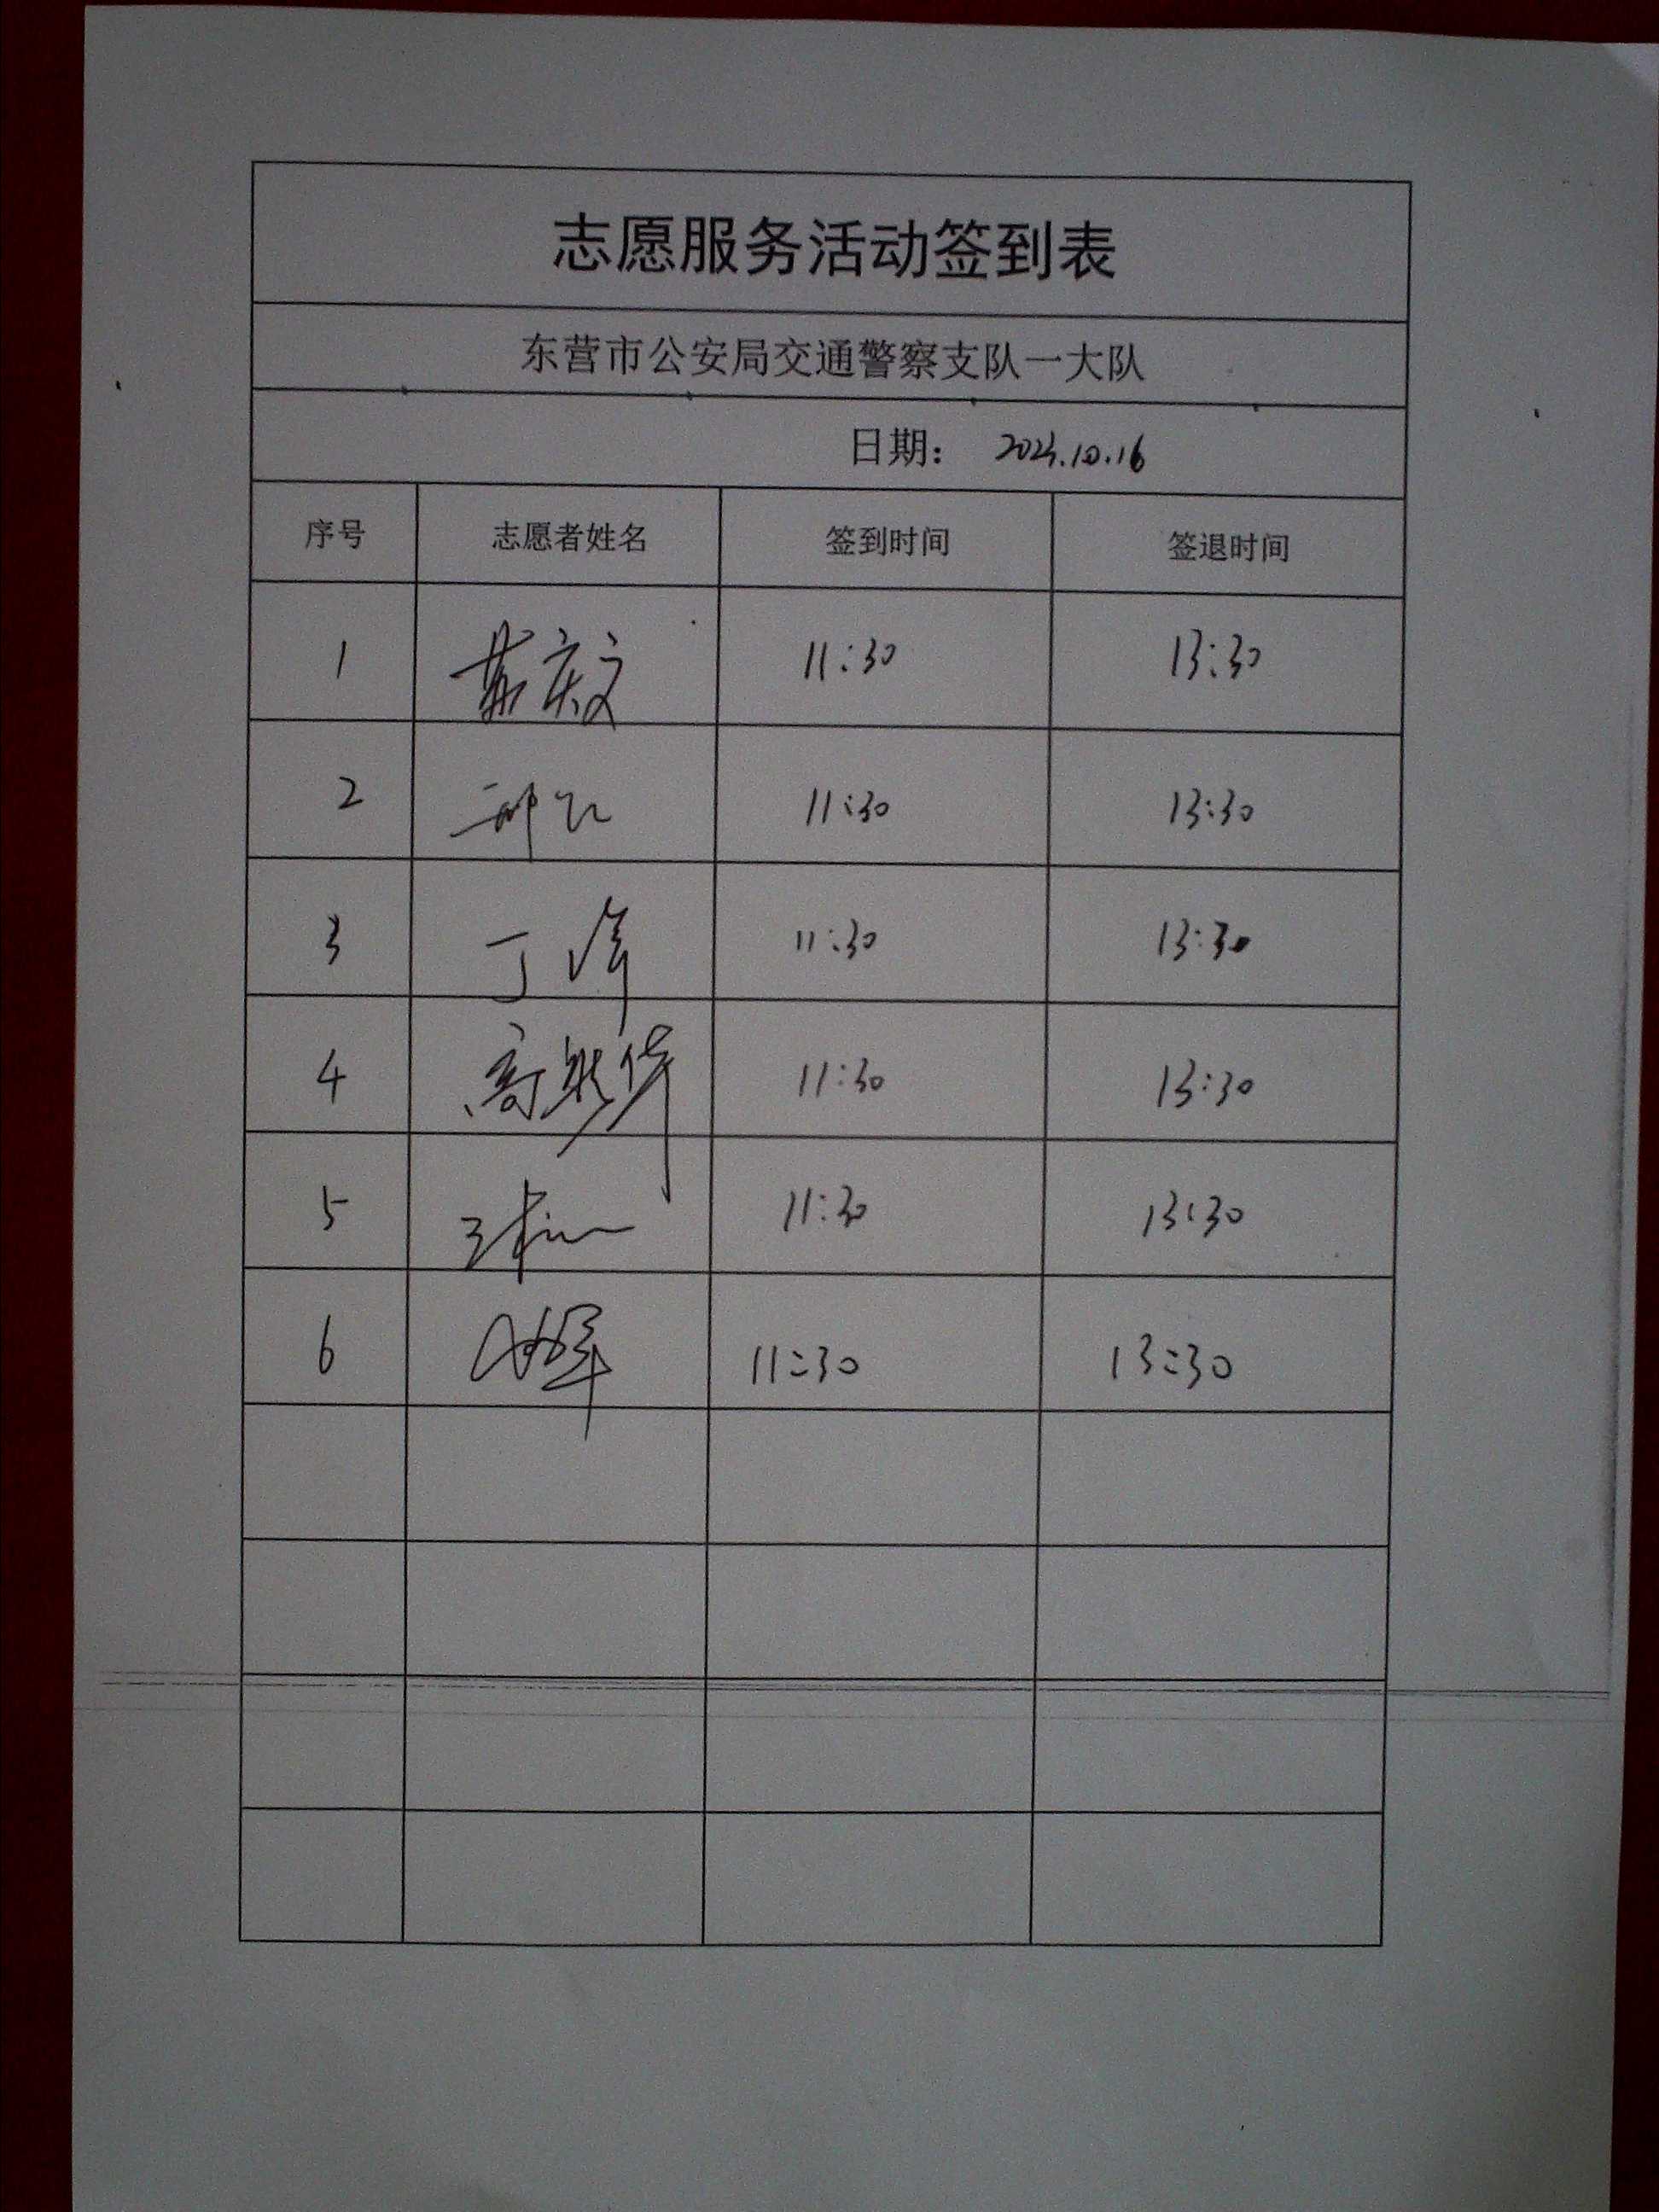 志愿服务活动签到表
东营市公安局交通警察支队一大队
日期：
序号 志愿者姓名 签到时间 签退时间
1 11:30 13:30
2 11:30 13:30
3 丁峰 11:30 13:30
4 11:30 13:30
5 11:30 13:30
6 11:30 13:30